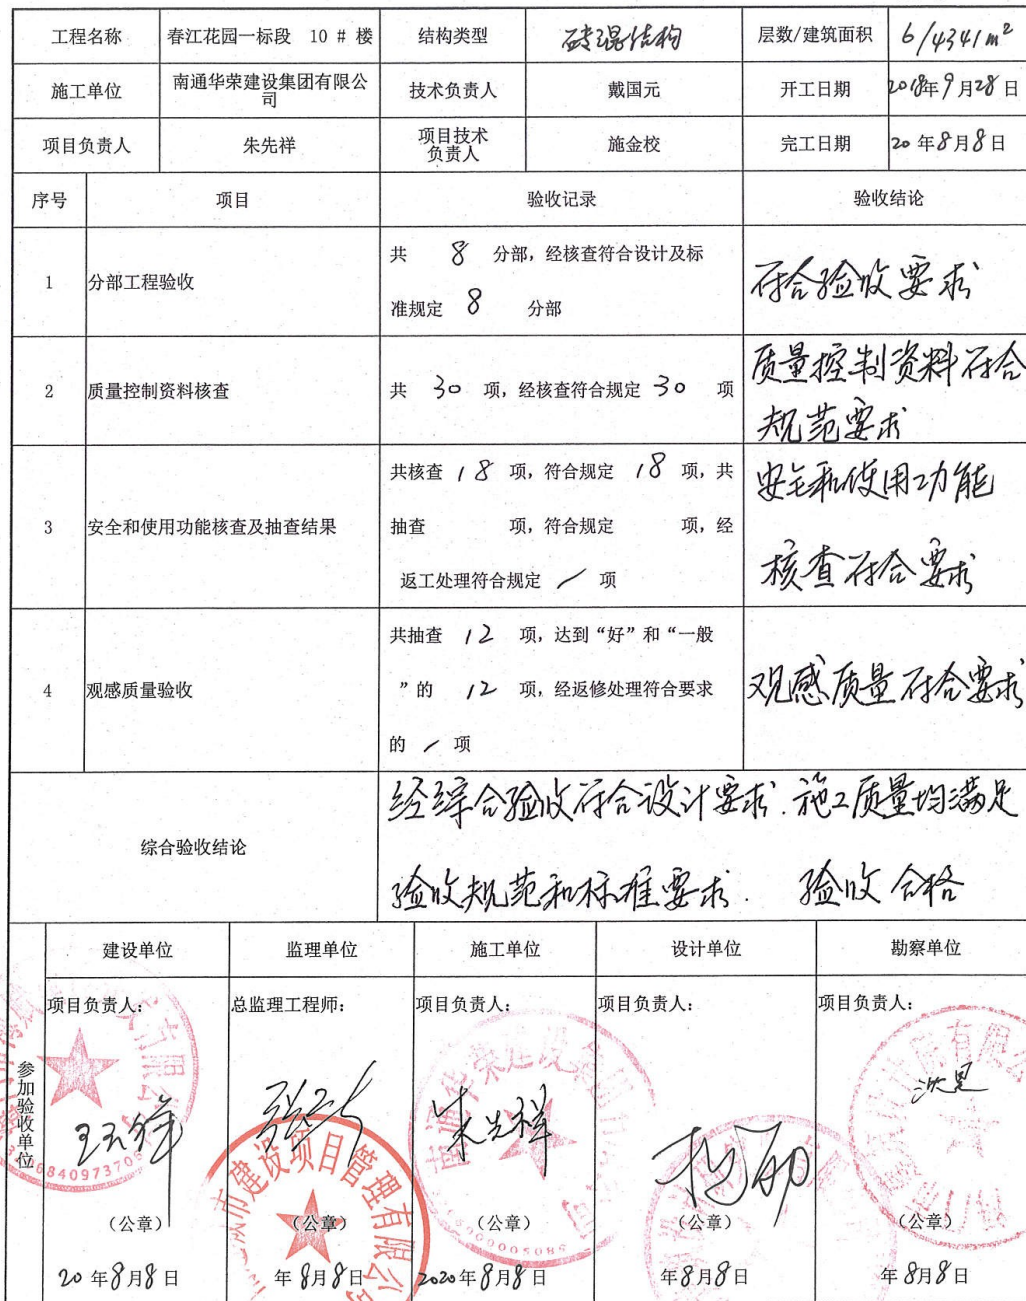 工程名称 春江花园一标段 10 # 楼 结构类型 砖混结构 层数/建筑面积 6/4341m²
施工单位 南通华荣建设集团有限公司 技术负责人 戴国元 开工日期 2018年9月28日
项目负责人 朱先祥 项目技术负责人 施金校 完工日期 20年8月8日
序号 项目 验收记录 验收结论
1 分部工程验收 共 8 分部，经核查符合设计及标
准规定 8 分部
符合验收要求
2 质量控制资料核查 共 30 项，经核查符合规定 30 项
质量控制资料符合
规范要求
3 安全和使用功能核查及抽查结果
共核查 18 项，符合规定 18 项，共
抽查 项，符合规定 项，经
返工处理符合规定 / 项
安全和使用功能
核查符合要求
4 观感质量验收
共抽查 12 项，达到“好”和“一般
”的 12 项，经返修处理符合要求
的 / 项
观感质量符合要求
综合验收结论
经综合验收符合设计要求.施工质量均满足
验收规范和标准要求. 验收合格
参加验收单位
建设单位 监理单位 施工单位 设计单位 勘察单位
项目负责人： 总监理工程师： 项目负责人： 项目负责人： 项目负责人：
朱先祥
南通华荣建设集团有限公司
市建设项目管理有限公司
有限公司
（公章） （公章） （公章） （公章） （公章）
20年8月8日 年8月8日 2020年8月8日 年8月8日 年8月8日